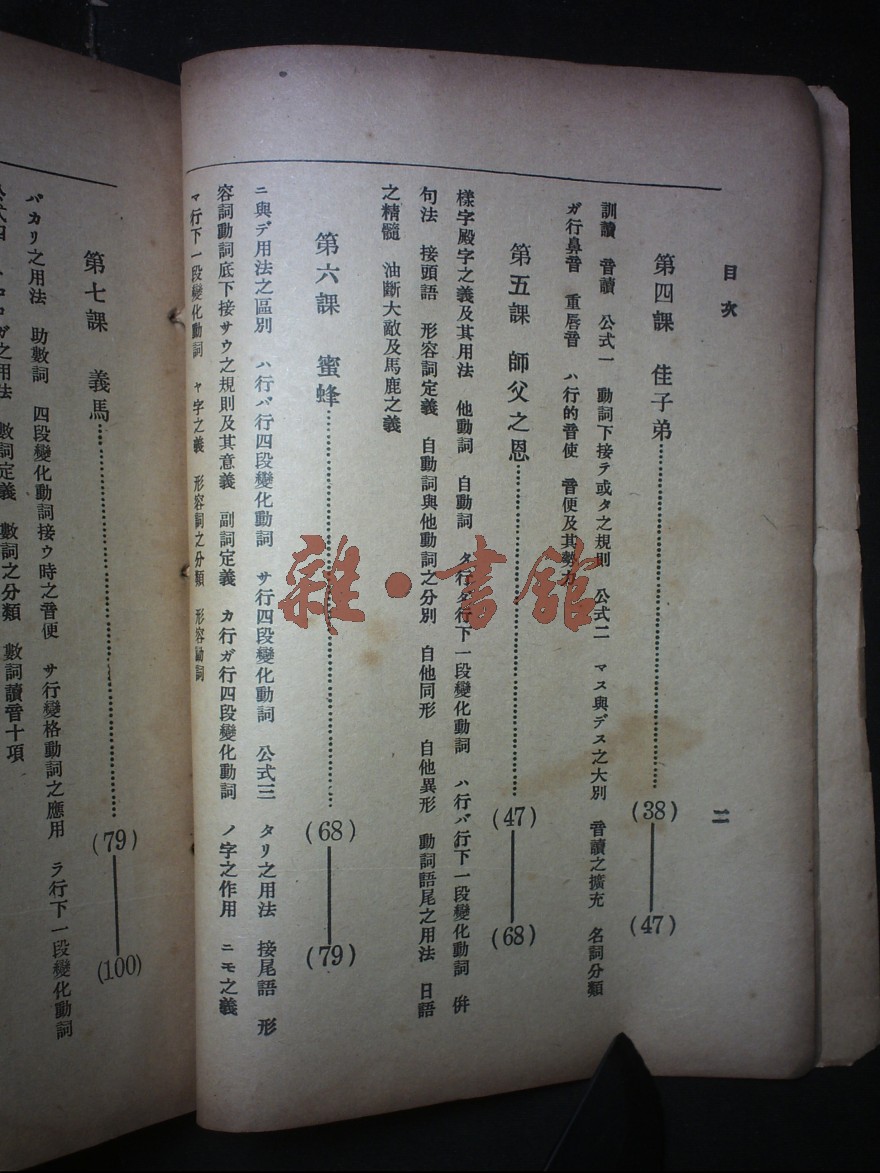 目次
二
第四課 佳子弟…………(38)——(47)
訓讀 音讀 公式一 動詞下接テ或タ之規則 公式二 マス與デス之大別 音讀之擴充 名詞分類
ガ行鼻音 重唇音 ハ行的音使 音便及其勢力
第五課 師父之恩…………(47)——(68)
樣字殿字之義及其用法 他動詞 自動詞 タ行ダ行下一段變化動詞 ハ行バ行下一段變化動詞 倂
句法 接頭語 形容詞定義 自動詞與他動詞之分別 自他同形 自他異形 動詞語尾之用法 日語
之精髓 油斷大敵及馬鹿之義
第六課 蜜蜂…………(68)——(79)
ニ與デ用法之區別 ハ行バ行四段變化動詞 サ行四段變化動詞 公式三 タリ之用法 接尾語 形
容詞動詞底下接サウ之規則及其意義 副詞定義 カ行ガ行四段變化動詞 ノ字之作用 ニモ之義
マ行下一段變化動詞 ヤ字之義 形容詞之分類 形容動詞
第七課 義馬…………(79)——(100)
バカリ之用法 助數詞 四段變化動詞接ウ時之音便 サ行變格動詞之應用 ラ行下一段變化動詞
之用法 數詞定義 數詞之分類 數詞讀音十項
雜·書館